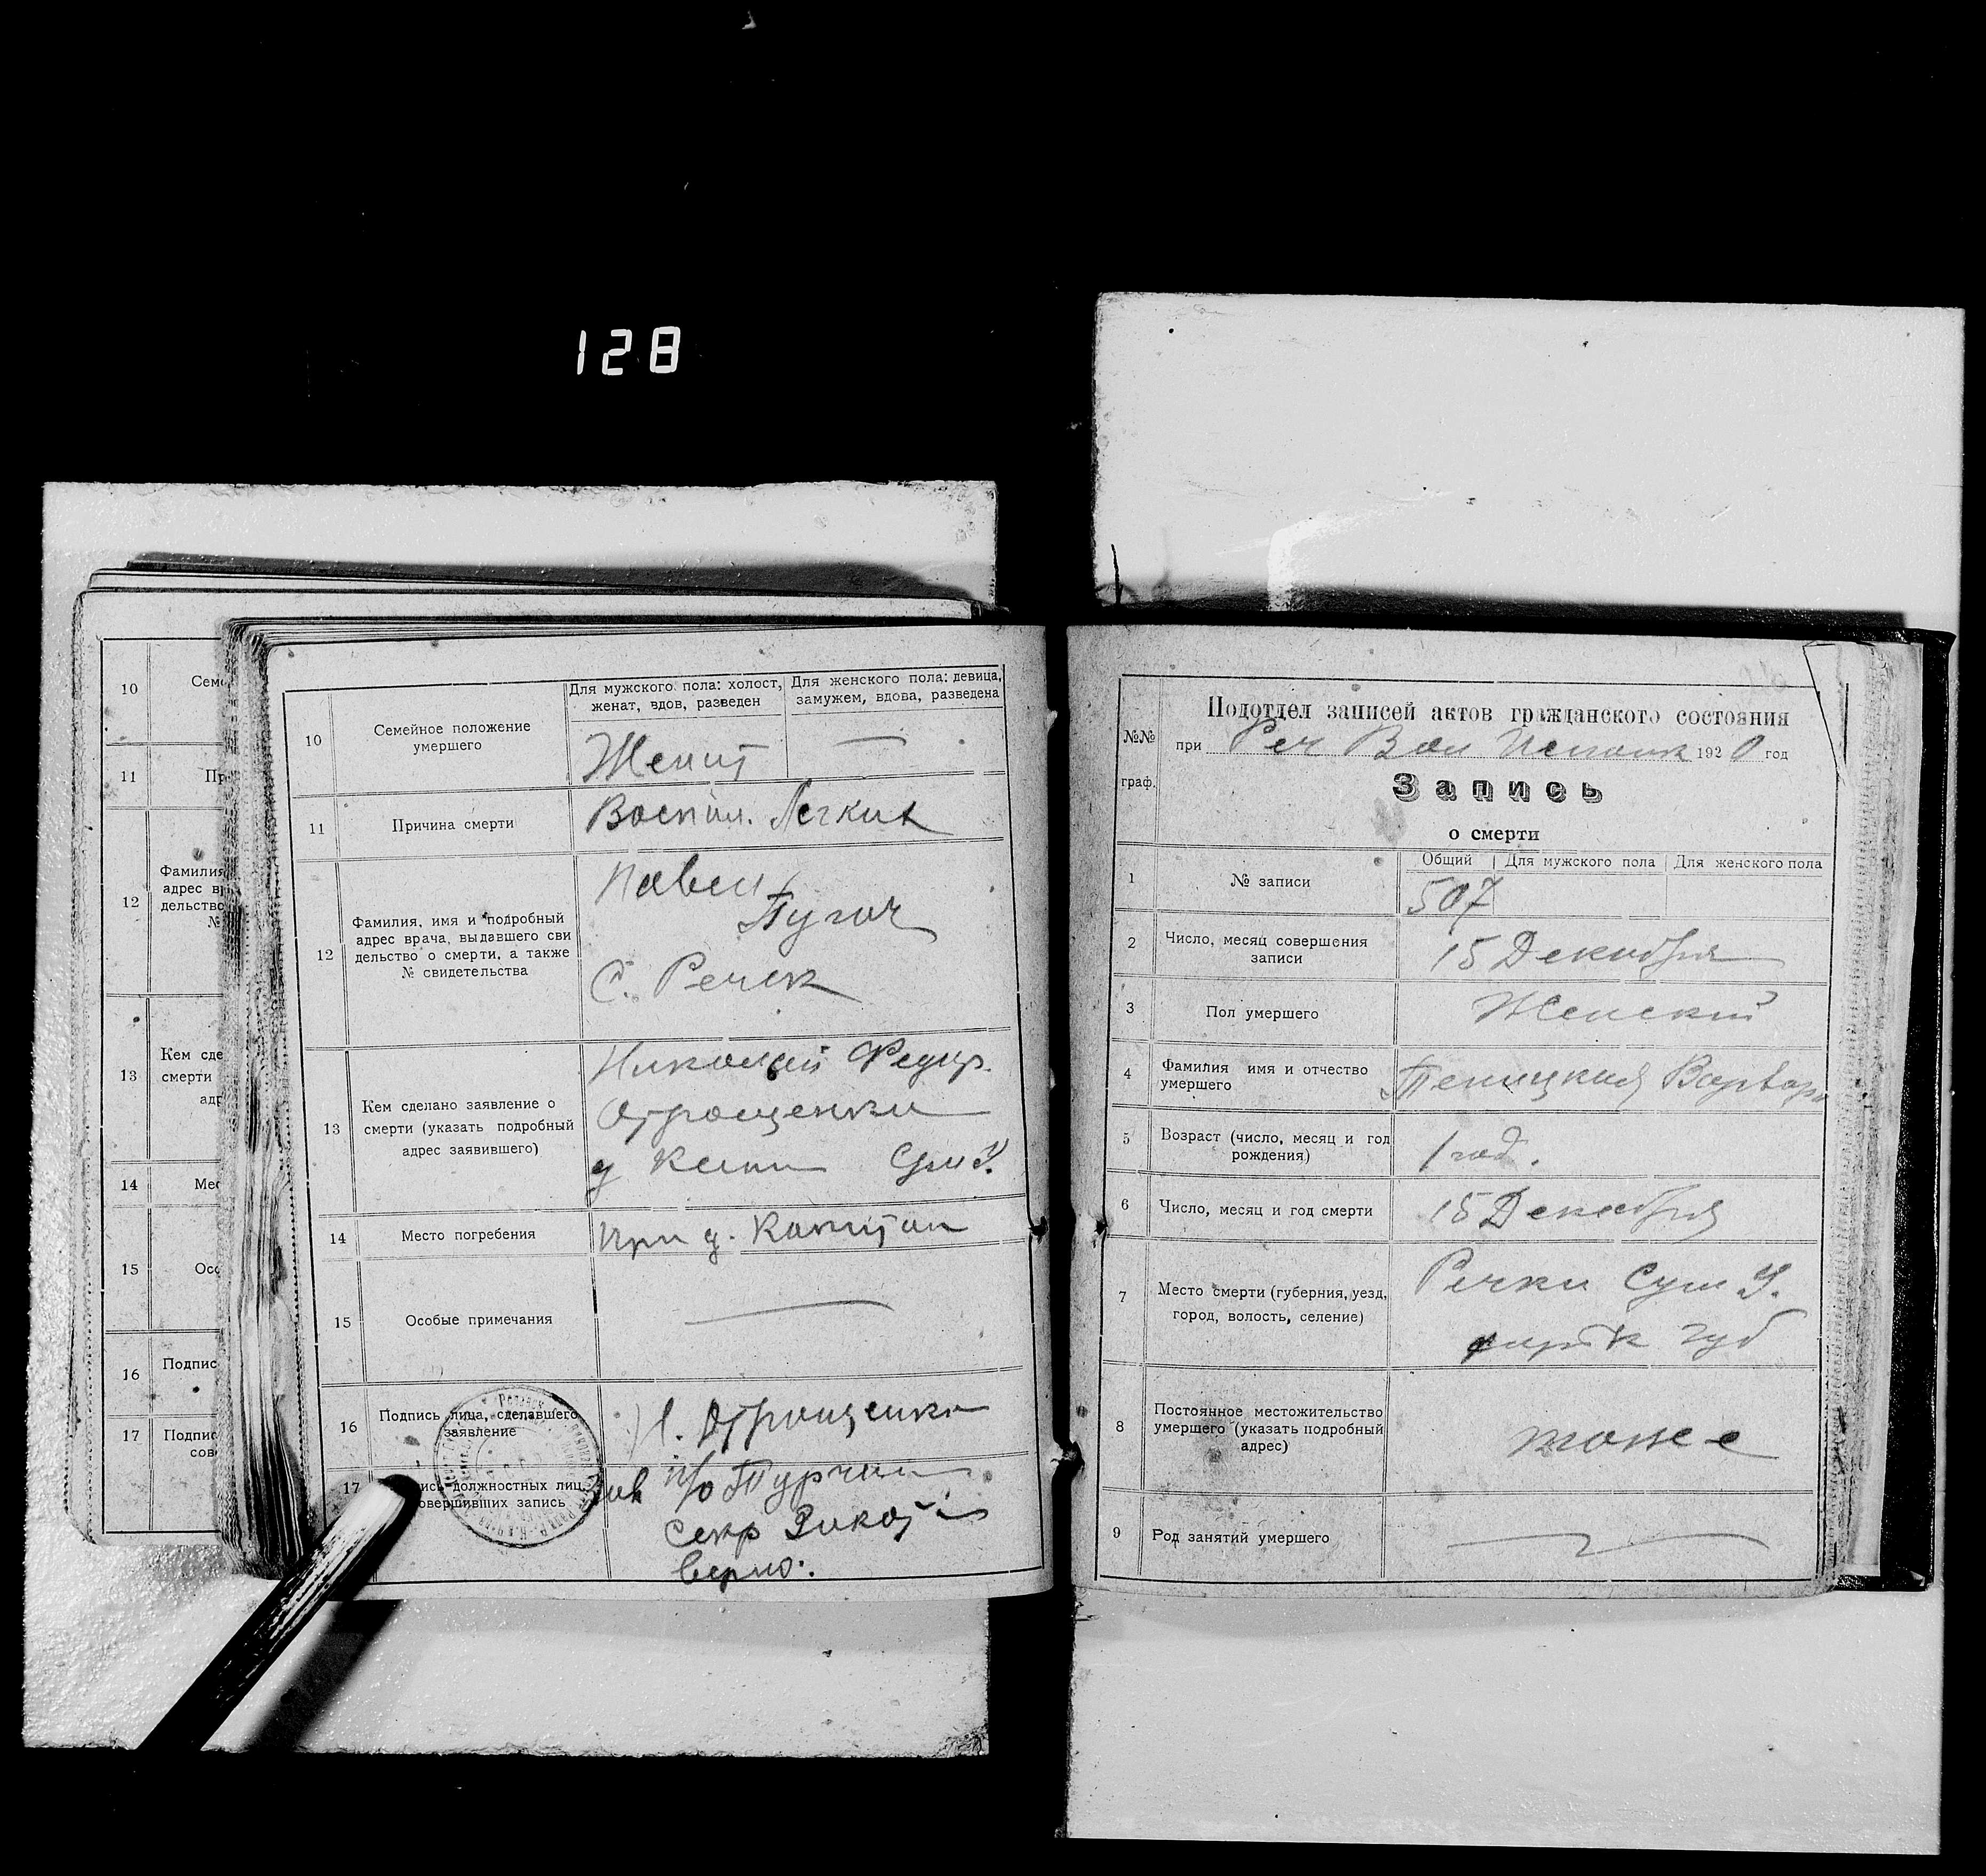 128
10
11
12
13
14
15
16
17
10
Семейное положение
умершего
Для мужского пола: холост,
женат, вдов, разведен
Для женского пола: девица,
замужем, вдова, разведена
11
Причина смерти
12
Фамилия, имя и подробный
адрес врача, выдавшего сви
дельство о смерти, а также
№ свидетельства
Павел
Пугач
С. Речек
13
Кем сделано заявление о
смерти (указать подробный
адрес заявившего)
Николай Федир.
Отрощенко
14
Место погребения
при д.
15
Особые примечания
16
Подпись лица, сделавшего
заявление
Н. Отрощенко
17
должностных лиц,
совершивших запись
п/о
секр
верно:
№№
граф.
Подотдел записей актов гражданского состояния
при Реч Вол Исполк 1920 год
Запись
о смерти
1
№ записи
Общий
Для мужского пола
Для женского пола
507
2
Число, месяц совершения
записи
15 Декабря
3
Пол умершего
Женский
4
Фамилия имя и отчество
умершего
Варвара
5
Возраст (число, месяц и год
рождения)
1 год.
6
Число, месяц и год смерти
15 Декабря
7
Место смерти (губерния, уезд,
город, волость, селение)
Речки Сум У.
губ
8
Постоянное местожительство
умершего (указать подробный
адрес)
тоже
9
Род занятий умершего